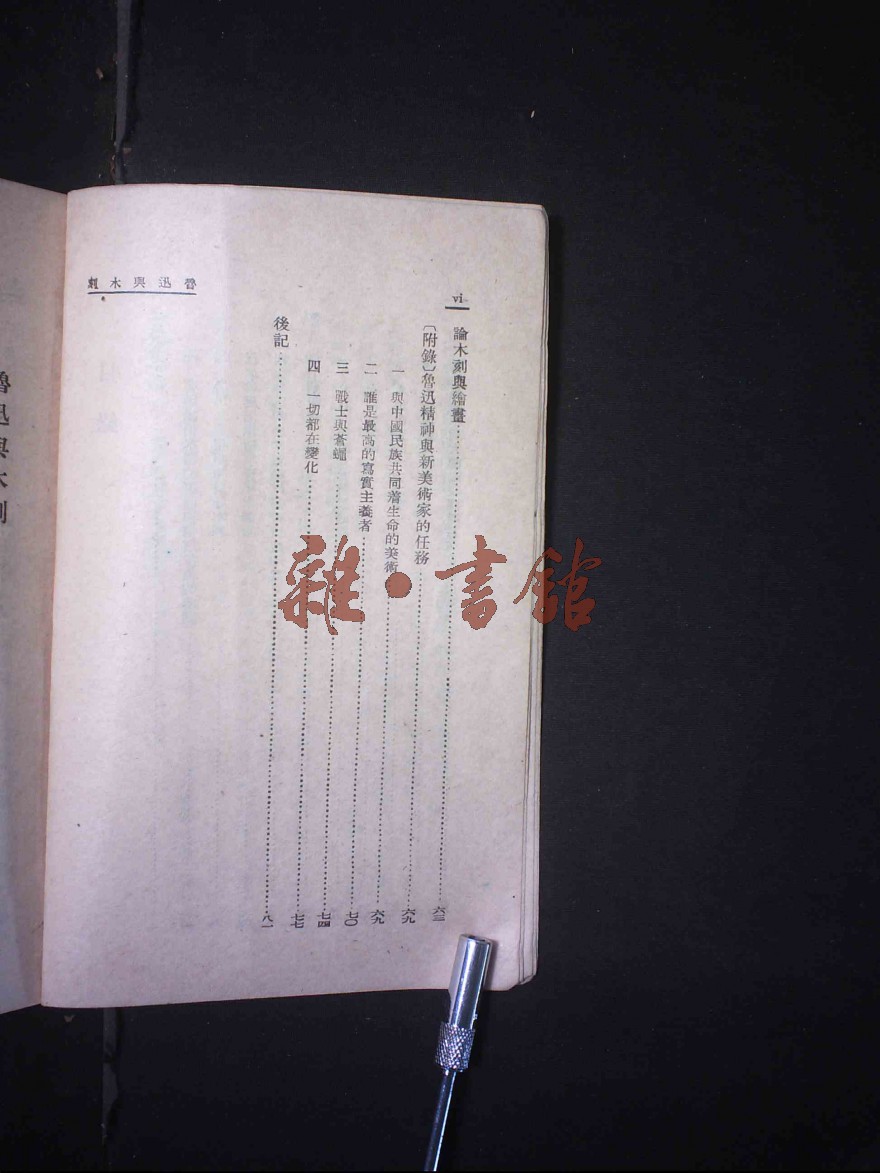 魯迅與木刻
vi
論木刻與繪畫……六三
〔附錄〕魯迅精神與新美術家的任務……六九
一 與中國民族共同着生命的美術……六九
二 誰是最高的寫實主義者……七〇
三 戰士與蒼蠅……七四
四 一切都在變化……七七
後記……八一
魯迅與木刻
雜·書館